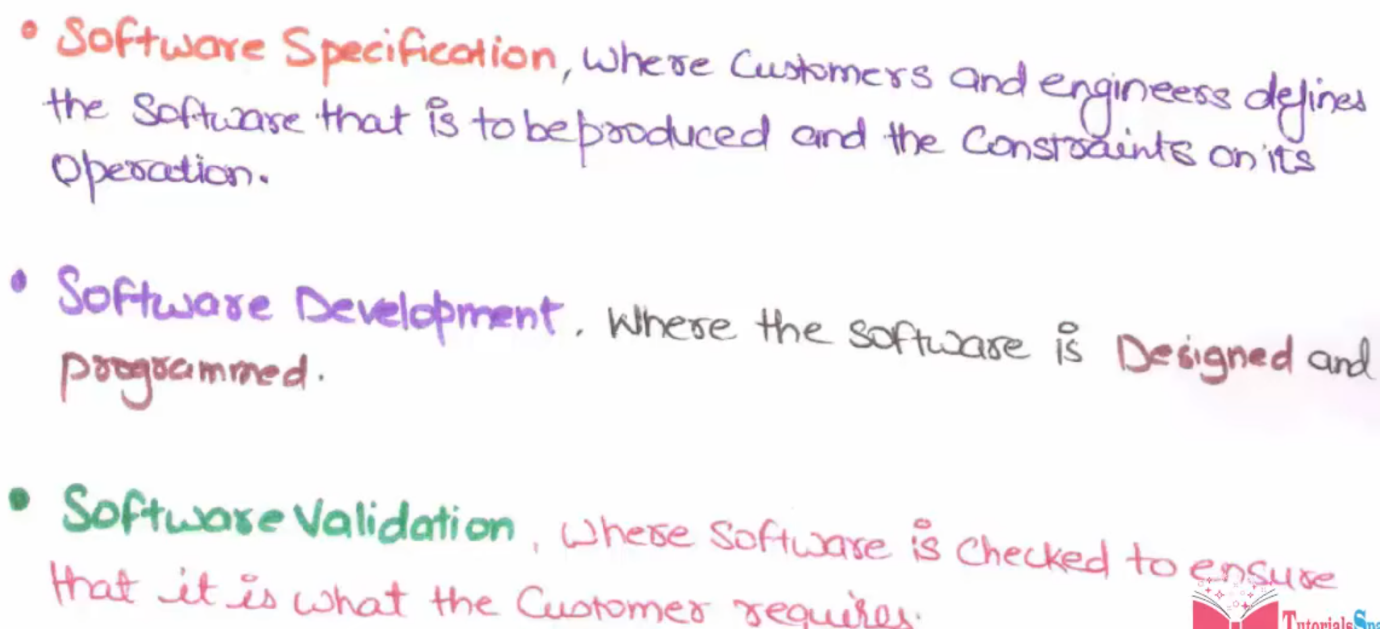 • Software Specification, where Customers and engineers defines
the Software that is to be produced and the Constraints on its
Operation.
• Software Development. Where the software is Designed and
programmed.
• Software Validation, where Software is Checked to ensure
that it is what the Customer requires.